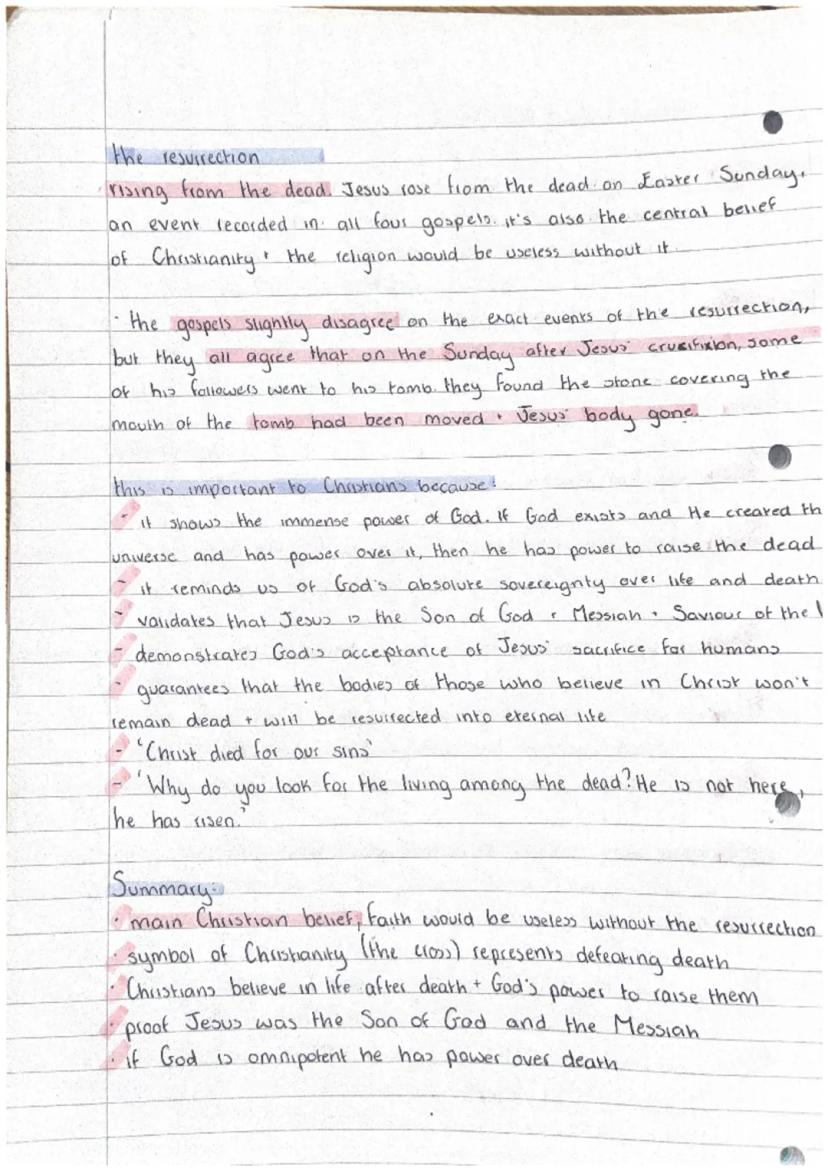 the resurrection
rising from the dead. Jesus rose from the dead on Easter Sunday,
an event recorded in all four gospels. it's also the central belief
of Christianity + the religion would be useless without it
· the gospels slightly disagree on the exact events of the resurrection,
but they all agree that on the Sunday after Jesus' crucifixion, some
of his followers went to his tomb. they found the stone covering the
mouth of the tomb had been moved + Jesus' body gone.
this is important to Christians because:
- it shows the immense power of God. If God exists and He created th
universe and has power over it, then he has power to raise the dead
- it reminds us of God's absolute sovereignty over life and death
- validates that Jesus is the Son of God + Messiah + Saviour of the
- demonstrates God's acceptance of Jesus' sacrifice for humans
- guarantees that the bodies of those who believe in Christ won't
remain dead + will be resurrected into eternal life
- 'Christ died for our sins'
- 'Why do you look for the living among the dead? He is not here,
he has risen.'
Summary:
· main Christian belief, faith would be useless without the resurrection
· symbol of Christianity (the cross) represents defeating death
· Christians believe in life after death + God's power to raise them
· proof Jesus was the Son of God and the Messiah
· if God is omnipotent he has power over death